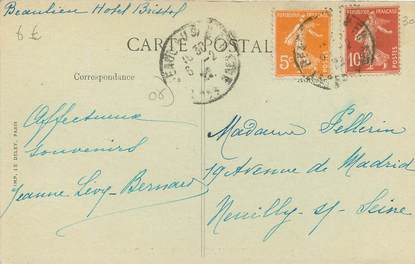 Beaulieu Hotel Bristol
6 £
CARTE POSTALE
Correspondance
06
RÉPUBLIQUE FRANÇAISE
5c
RÉPUBLIQUE FRANÇAISE
10c
30
Affectueux
Souvenirs
Jeanne Lévy-Bernard
Madame Pellerin
19 Avenue de Madrid
Neuilly s/- Seine
IMP. LE DELEY, PARIS